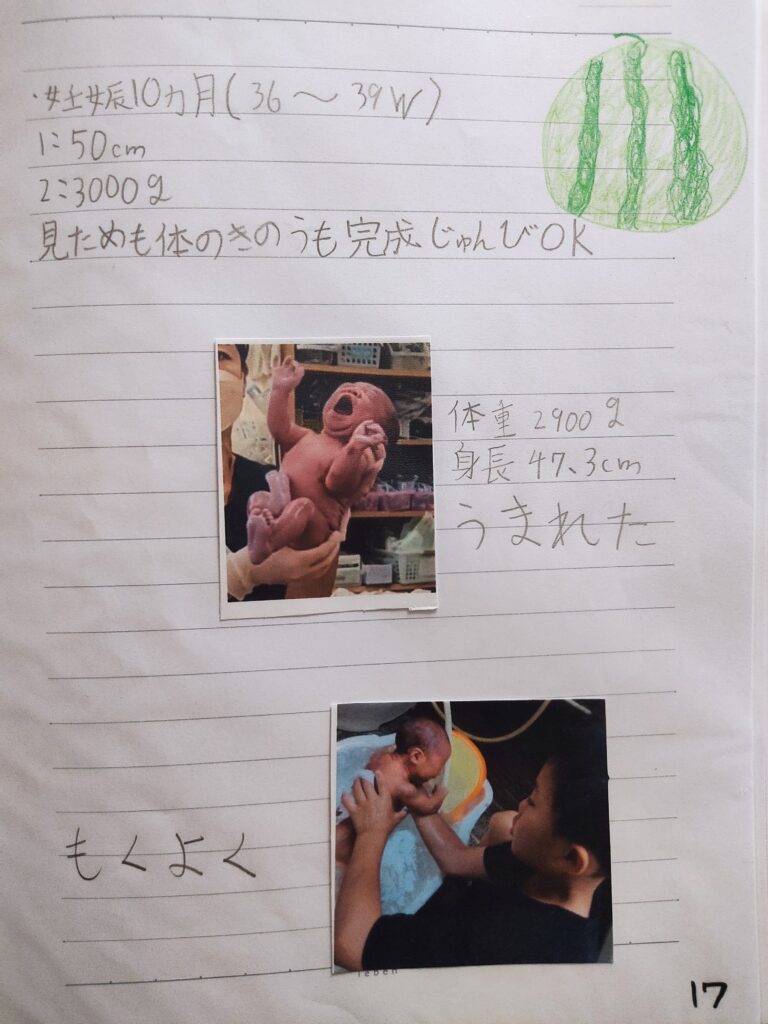 ・妊娠10カ月(36〜39W)
に50cm
に3000g
見ためも体のきのうも完成じゅんびOK
体重 2900g
身長 47.3cm
うまれた
もくよく
leben
17